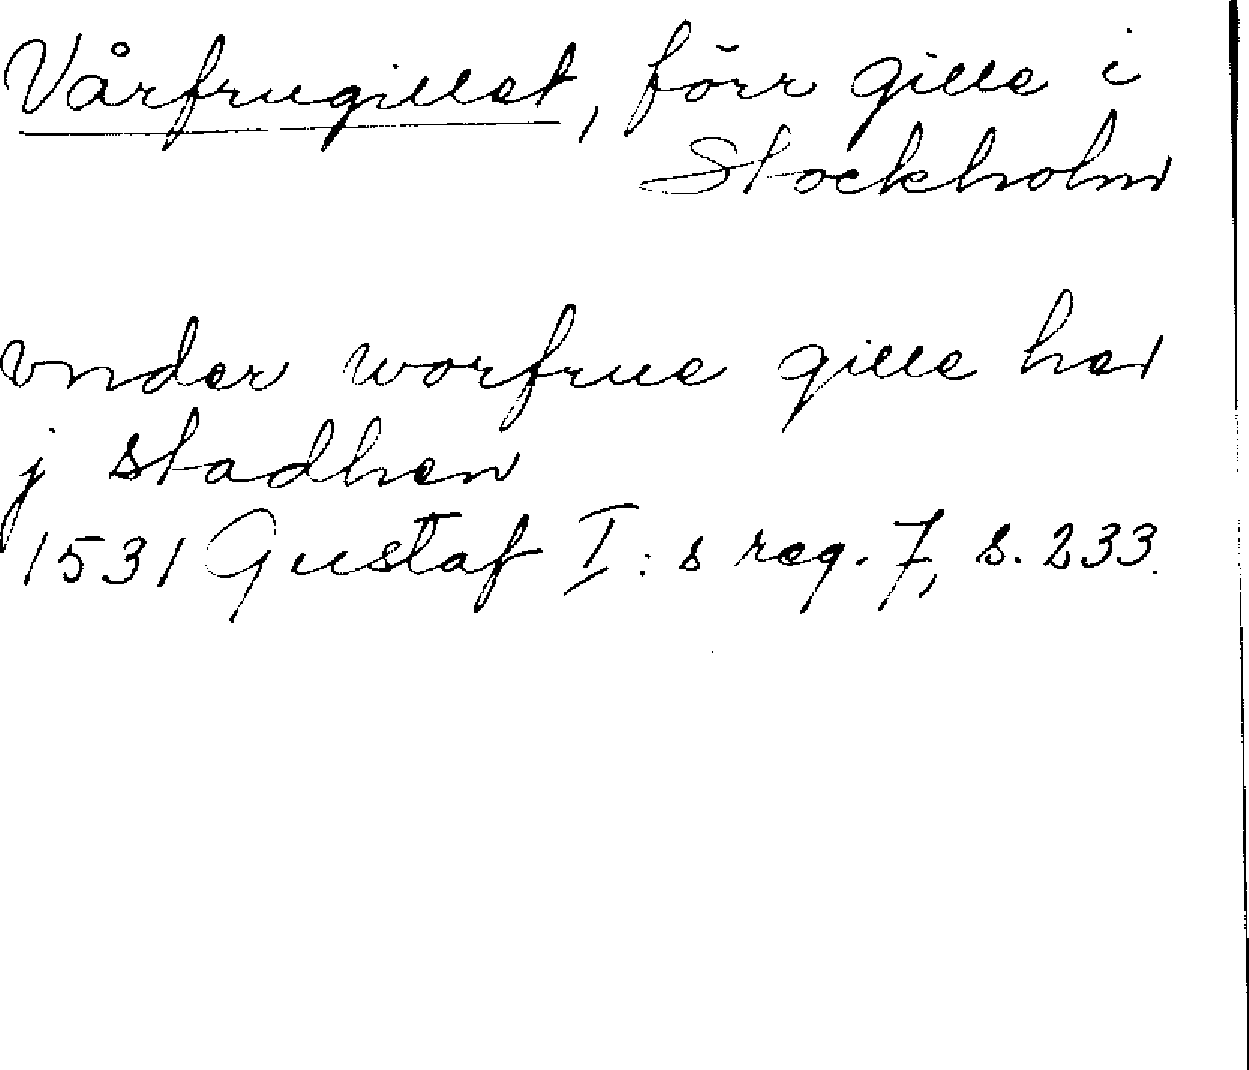 Vårfrugillet, förr gille i
Stockholm
vnder worfrue gille her
j stadhen
1531 Gustaf I:s reg. 7, s. 233.